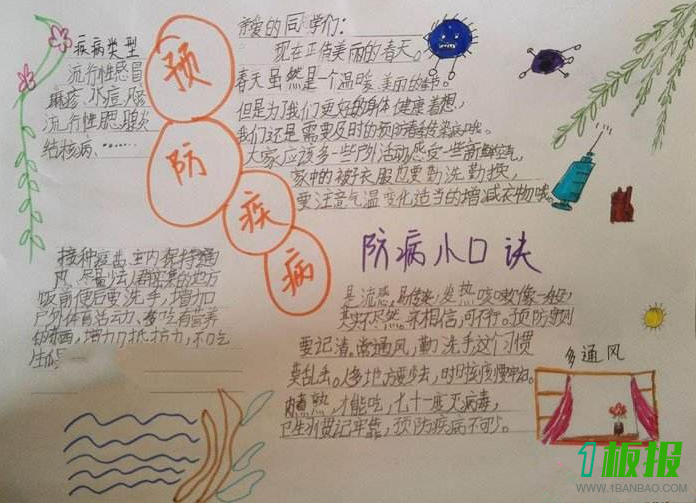 疾病类型
流行性感冒
麻疹、水痘、风疹
流行性腮腺炎
结核病、……
预
防
疾
病
亲爱的同学们：
现在正值美丽的春天。
春天虽然是一个温暖、美丽的季节。
但是为了我们更好的身体健康着想，
我们还是需要及时的预防春季传染病哦。
大家应该多一些户外活动感受一些新鲜空气，
家中的被子衣服也要勤洗勤换，
要注意气温变化适当的增减衣物哦。
接种疫苗、室内保持通
风、尽量少去人群密集的地方
饭前便后要洗手，增加
户外体育活动、多吃有营养
的东西，增加抵抗力，不吃
生
防病小口诀
是流感，易传染，发热咳嗽像一般，
其实不尽然。来相信，可不行。预防守则
要记清。常通风，勤洗手这个习惯
要乱丢。人多地方要少去，时时
肉煮熟，才能吃，七十一度灭病毒，
卫生习惯记牢靠，预防疾病不可少。
多通风
1板报
WWW.1BANBAO.COM